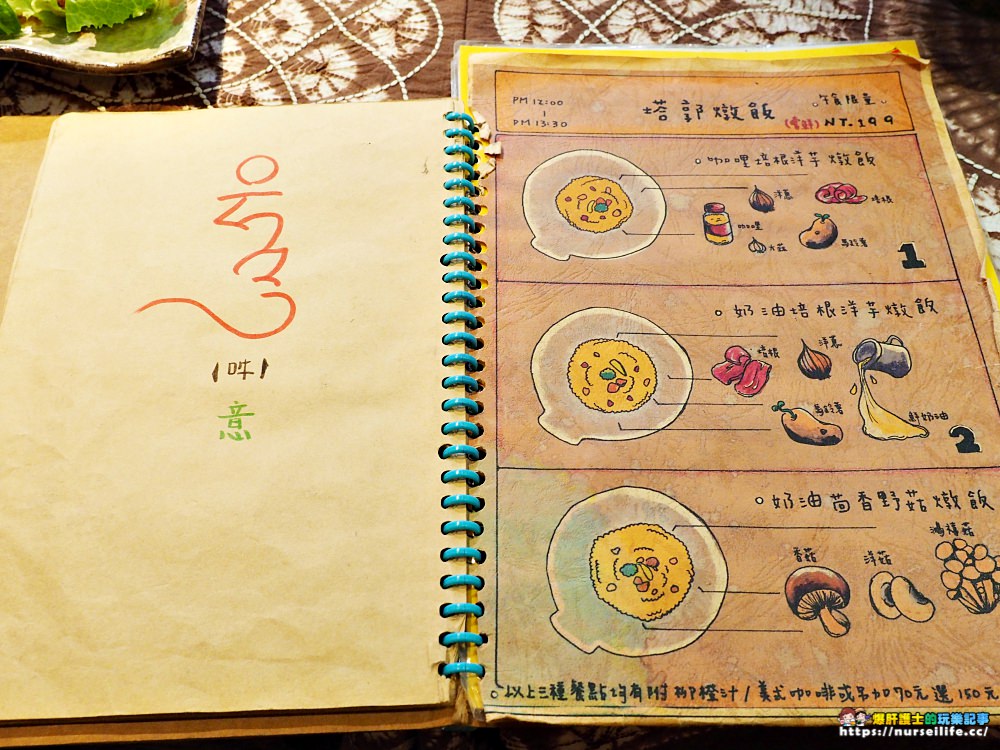 (吽)
意
PM 12:00
|
PM 13:30
塔郭燉飯
。午食限量。
NT.199
。咖哩培根洋芋燉飯
洋蔥
培根
咖哩
大蒜
馬鈴薯
1
。奶油培根洋芋燉飯
培根
洋蔥
馬鈴薯
鮮奶油
2
。奶油茴香野菇燉飯
香菇
洋菇
鴻禧菇
。以上三種餐點均有附柳橙汁/美式咖啡或另加70元選150元
爆肝護士的玩樂記事
https://nurseilife.cc/